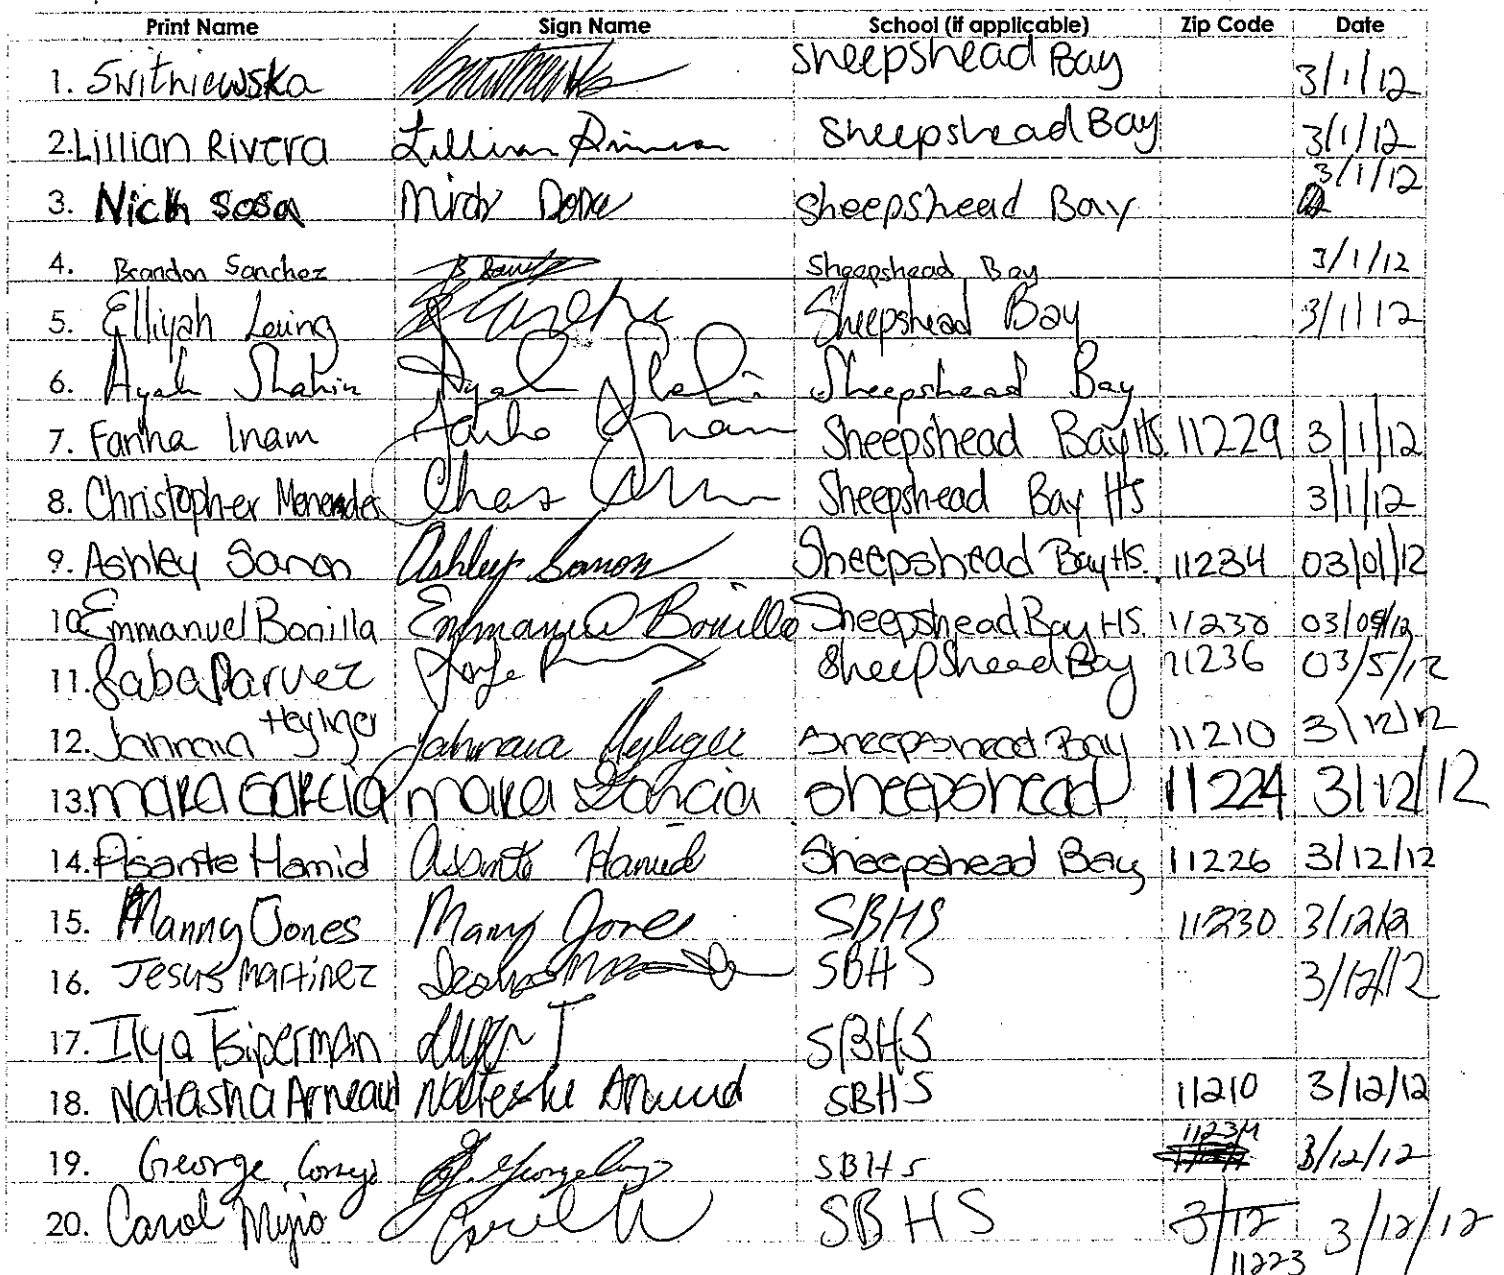 Print Name Sign Name School (if applicable) Zip Code Date
1. Switniewska Sheepshead Bay 3/1/12
2. Lillian Rivera Lillian Rivera Sheepshead Bay 3/1/12
3. Nick Sosa Sheepshead Bay 3/1/12
4. Brandon Sanchez Sheepshead Bay 3/1/12
5. Elliyah Sheepshead Bay 3/1/12
6. Ayah Shahin Ayah Sheepshead Bay
7. Fariha Inam Fariha Inam Sheepshead Bay HS. 11229 3/1/12
8. Christopher Menendez Sheepshead Bay HS 3/1/12
9. Ashley Sanon Ashley Sanon Sheepshead Bay HS. 11234 03/01/12
10. Emmanuel Bonilla Emmanuel Bonilla Sheepshead Bay HS. 11230
11. Saba Parvez Sheepshead Bay 11236 03/5/12
12. Jahnaia Heyliger Jahnaia Heyliger Sheepshead Bay 11210 3/12/12
13. Mara Garcia Mara Garcia Sheepshead 11224 3/12/12
14. Asante Hamid Asante Hamid Sheepshead Bay 11226 3/12/12
15. Manny Jones Many Jones SBHS 11230 3/12/12
16. Jesus Martinez SBHS 3/12/12
17. Ilya Tsiperman SBHS
18. Natasha Arneaud SBHS 11210 3/12/12
19. George SBHS 11234 3/12/12
20. Carol SBHS 3/12 3/12/12
11223